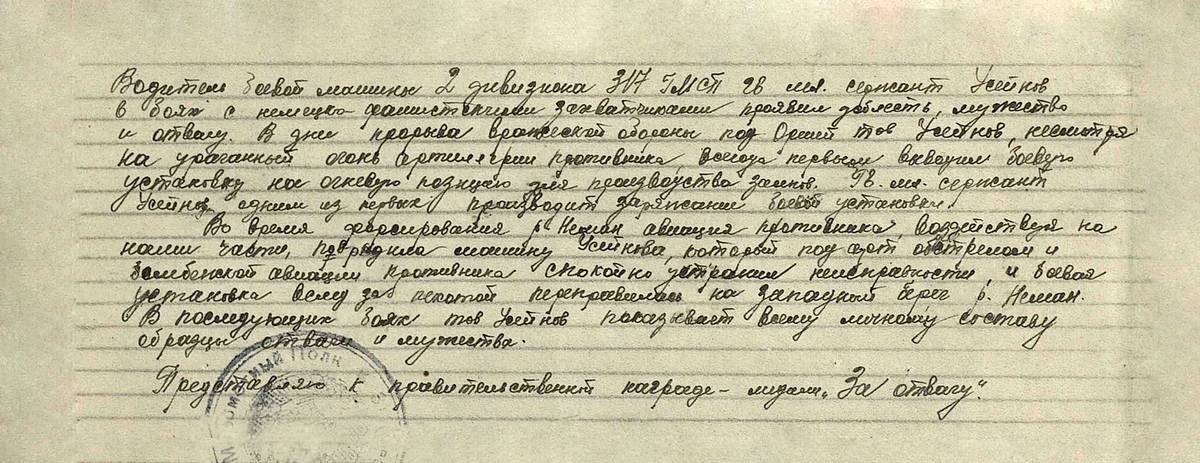 Водитель боевой машины 2 дивизиона 317 ГМСП гв мл. сержант Усейнов
в боях с немецко фашистскими захватчиками проявил доблесть, мужество
и отвагу. В дни прорыва вражеской обороны под Оршей тов Усейнов, несмотря
на ураганный огонь артиллерии противника всегда первым выводил боевую
установку на огневую позицию для производства залпов. Гв. мл. сержант
Усейнов одним из первых производит заряжание боевой установки.
Во время форсирования р. Неман авиация противника, воздействуя на
наши части, повредила машину Усейнова, который под арт обстрелом и
бомбежкой авиации противника спокойно устранил неисправности, и боевая
установка вслед за пехотой переправилась на западный берег р. Неман.
В последующих боях тов Усейнов показывает всему личному составу
образцы отваги и мужества.
Представляю к правительственной награде – медали „За отвагу".
Минометный Полк